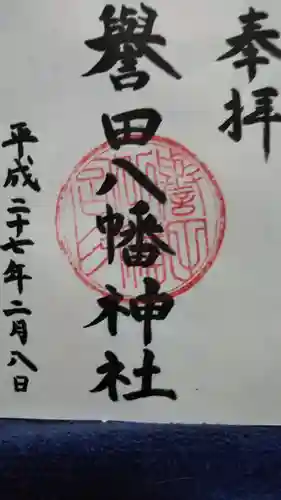 奉拝
誉田八幡神社
平成二十七年二月八日